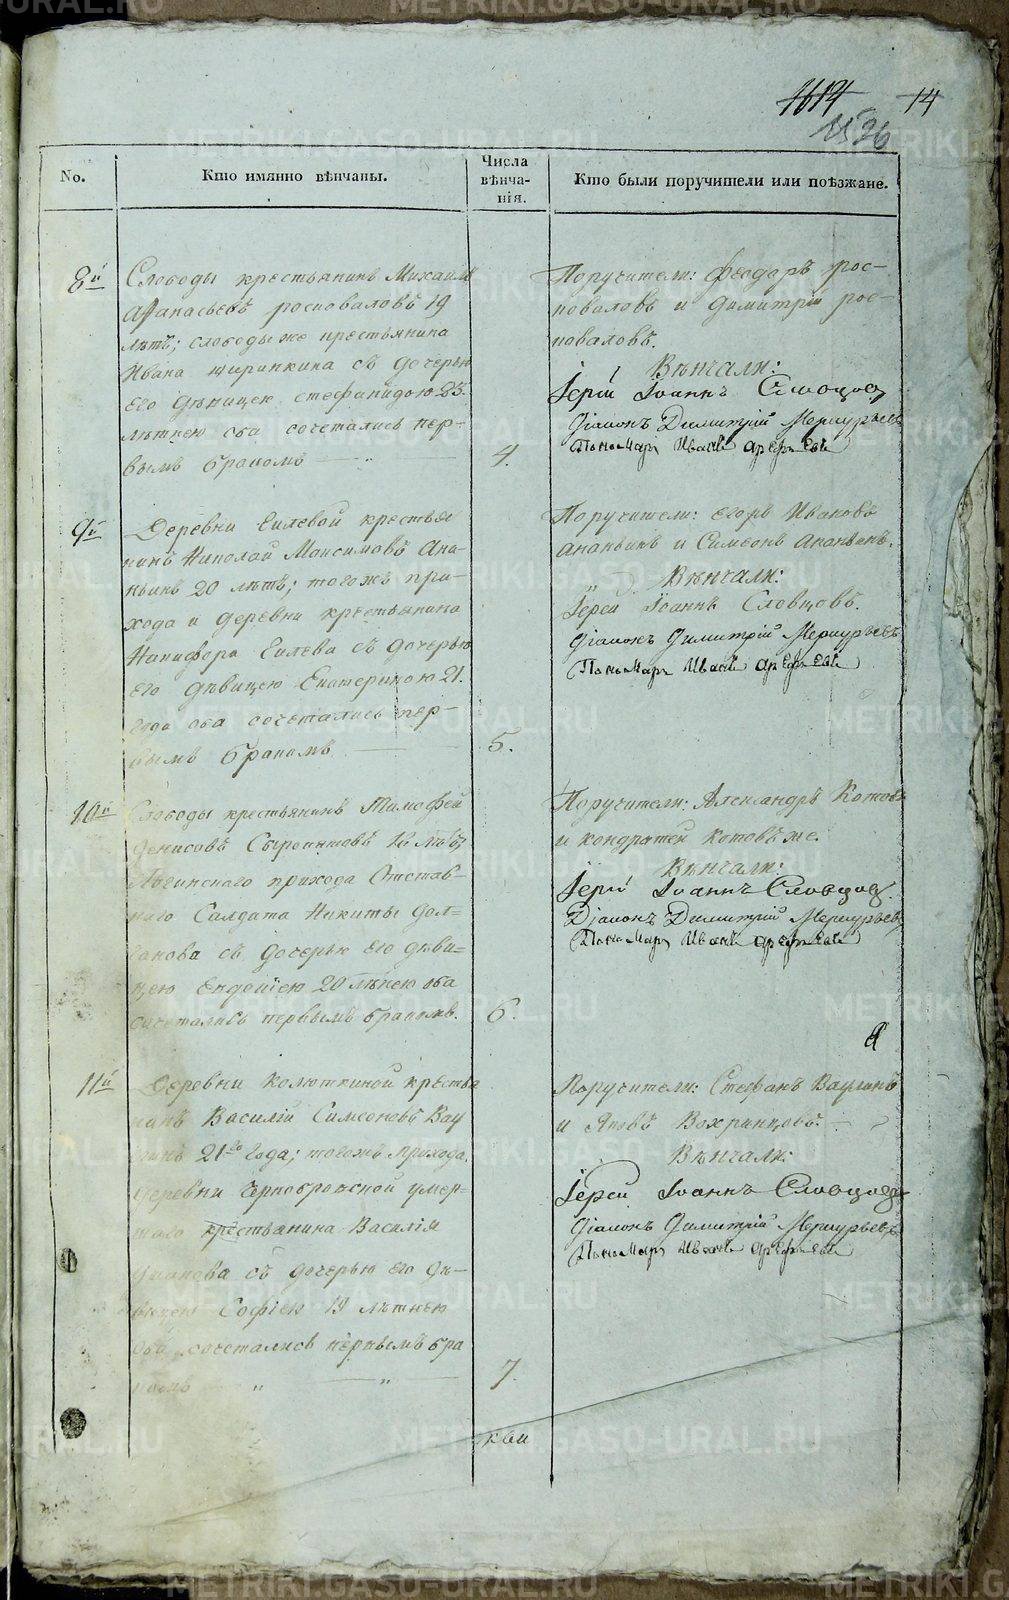 1614 14
1526
No.
Кто имянно вѣнчаны.
Числа
вѣнча-
нія.
Кто были поручители или поѣзжане.
8й
Слободы крестьянинъ Михаилъ
Афанасьевъ росповаловъ 19
лѣтъ; слободы же крестьянина
Ивана ширинкина съ дочерью
его дѣвицею стефанидою 23.
лѣтнею оба сочетались пер-
вымъ бракомъ
4.
Поручители: Феодоръ рос-
поваловъ и димитрій рос-
поваловъ.
Вѣнчали:
Іерей Іоаннъ Словцовъ
Діаконъ Димитрій Меркурьевъ
Пономарь Иванъ Арефьевъ
9й
Деревни Гилевой крестья
нинъ Николай Максимовъ Ана-
ньинъ 20 лѣтъ; тогожъ при-
хода и деревни крестьянина
Никифора Гилева съ дочерью
его дѣвицею Екатериною 21.
года оба сочетались пер-
вымъ бракомъ
5.
Поручители: Егоръ Ивановъ
Ананьинъ и Симеонъ Ананьинъ.
Вѣнчали:
Іерей Іоаннъ Словцовъ.
Діаконъ Димитрій Меркурьевъ
Пономарь Иванъ Арефьевъ
10й
Слободы крестьянинъ Тимофей
Денисовъ Сыропятовъ лѣтъ
прихода Отстав-
наго Салдата Никиты Дол-
ганова съ дочерью его дѣви-
цею Евдокіею 20 лѣтнею оба
сочетались первымъ бракомъ.
6.
Поручители: Александръ Котовъ
и кондратей котовъ же.
Вѣнчали:
Іерей Іоаннъ Словцовъ.
Діаконъ Димитрій Меркурьевъ
Пономарь Иванъ Арефьевъ
11й
Деревни Колюткиной крестья
нинъ Василій Симеоновъ Вау
линъ 21го года; тогожъ прихода
деревни Чернобровской умер-
шаго крестьянина Василія
съ дочерью его дѣ-
вицею Софіею 19 лѣтнею
оба сочетались первымъ бра
комъ
7.
Поручители: Стефанъ Ваулинъ
и Яковъ Вохринцовъ.
Вѣнчали:
Іерей Іоаннъ Словцовъ
Діаконъ Димитрій Меркурьевъ
Пономарь Иванъ Арефьевъ
METRIKI.GASO-URAL.RU